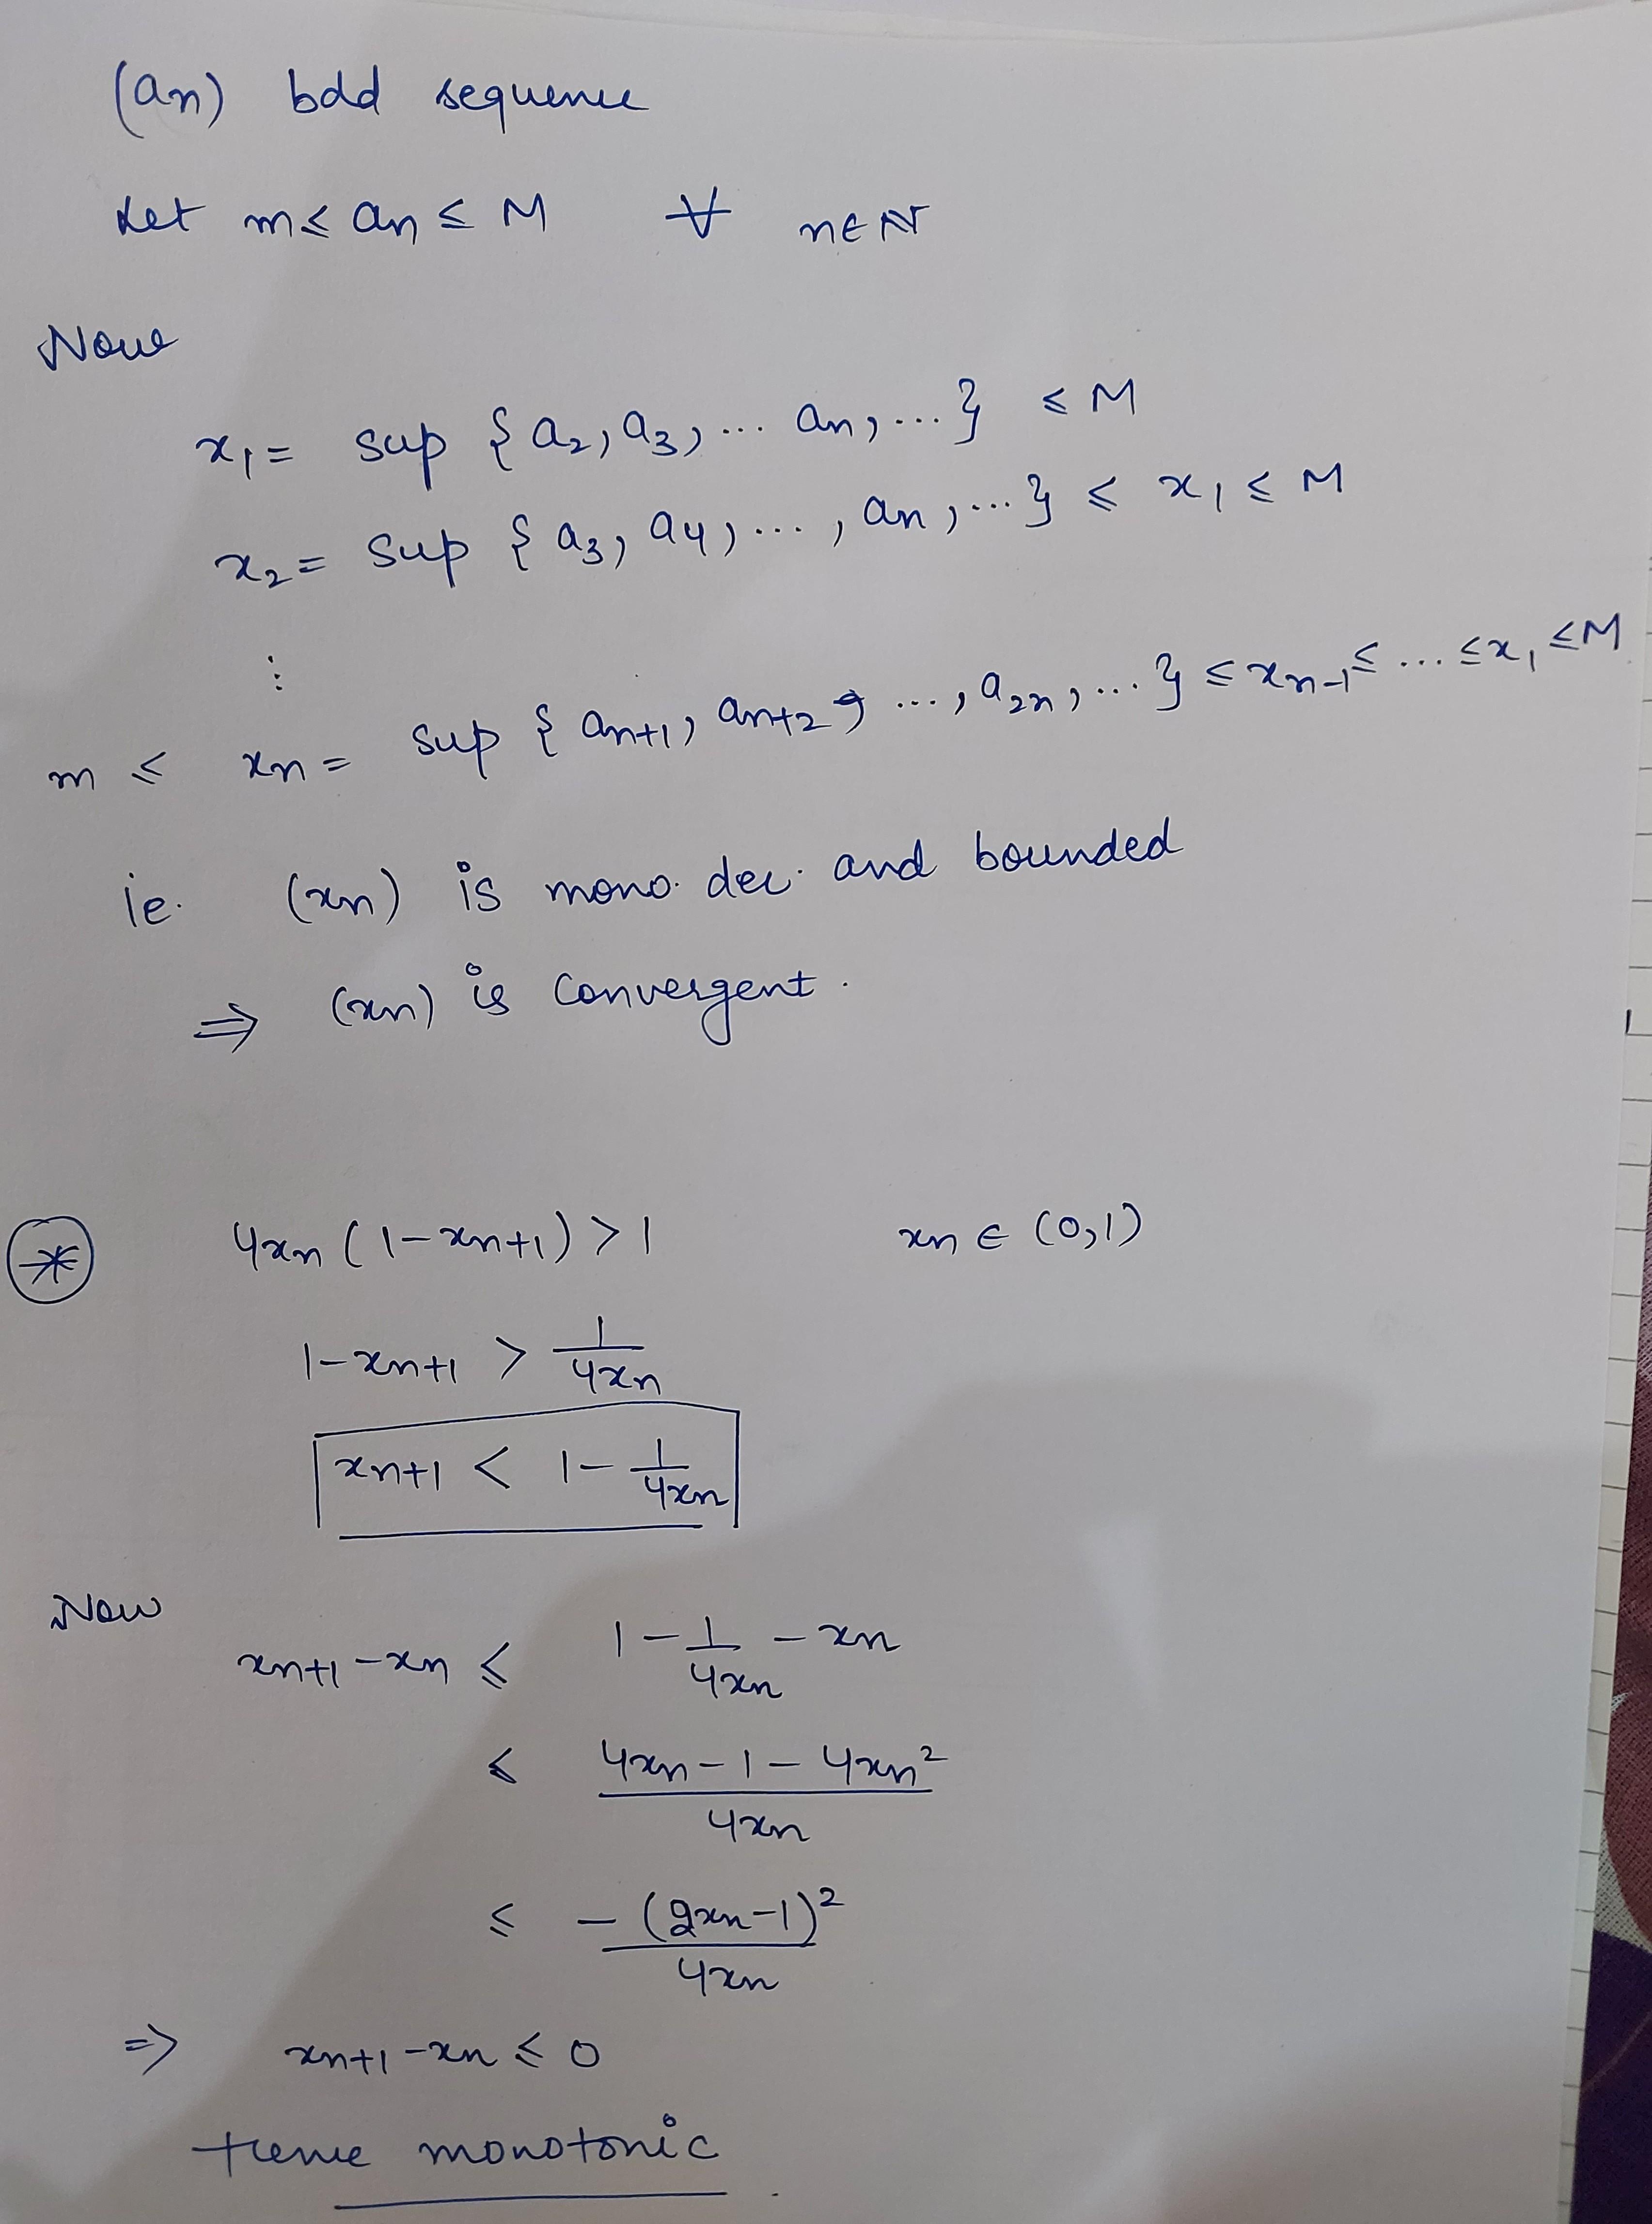 (an) bdd sequence
Let m ≤ an ≤ M ∀ n ∈ ℕ
Now
x₁ = sup { a₂, a₃, ... an, ... } ≤ M
x₂ = sup { a₃, a₄, ..., an, ... } ≤ x₁ ≤ M
⋮
m ≤ xn = sup { an+1, an+2, ..., a₂n, ... } ≤ xn-1 ≤ ... ≤ x₁ ≤ M
ie. (xn) is mono. dec. and bounded
⇒ (xn) is convergent.
* 4xn (1-xn+1) > 1 xn ∈ (0,1)
1-xn+1 > 1/4xn
xn+1 < 1 - 1/4xn
Now
xn+1 - xn ≤ 1 - 1/4xn - xn
≤ (4xn - 1 - 4xn²)/4xn
≤ -(2xn-1)²/4xn
⇒ xn+1 - xn ≤ 0
Hence monotonic.